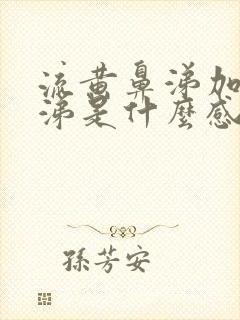 流黃鼻涕加
涕是什麼感
孫芳安